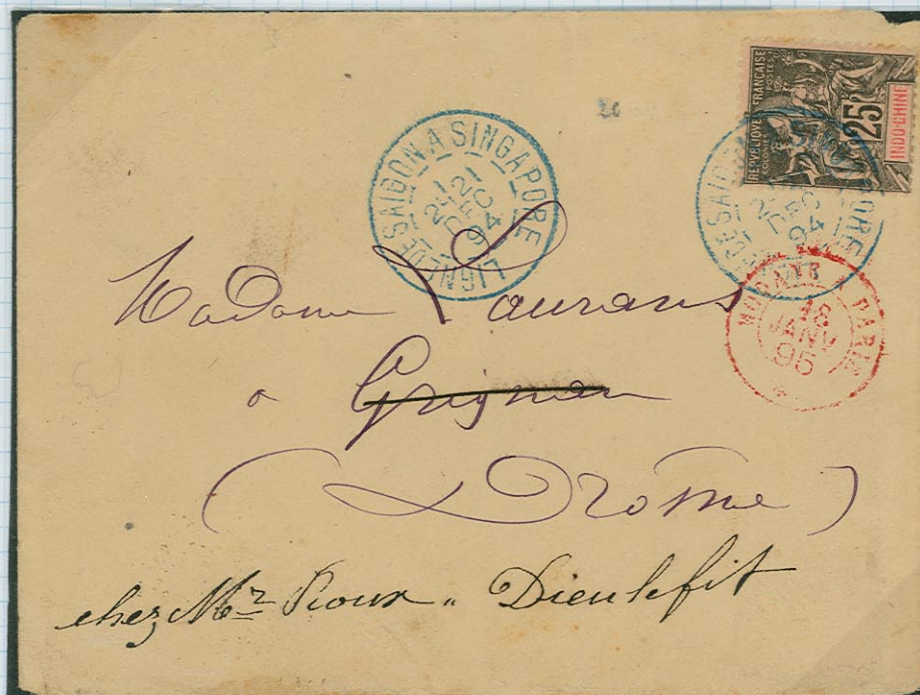 20
REPUBLIQUE FRANCAISE
25
INDO-CHINE
LIGNE DE SAIGON A SINGAPORE
21 DEC 94
21 DEC 94
MODANE PARIS
18 JANV 95
Madame Laurans
a Grignan
(Drôme)
chez Mr Roux " Dieulefit